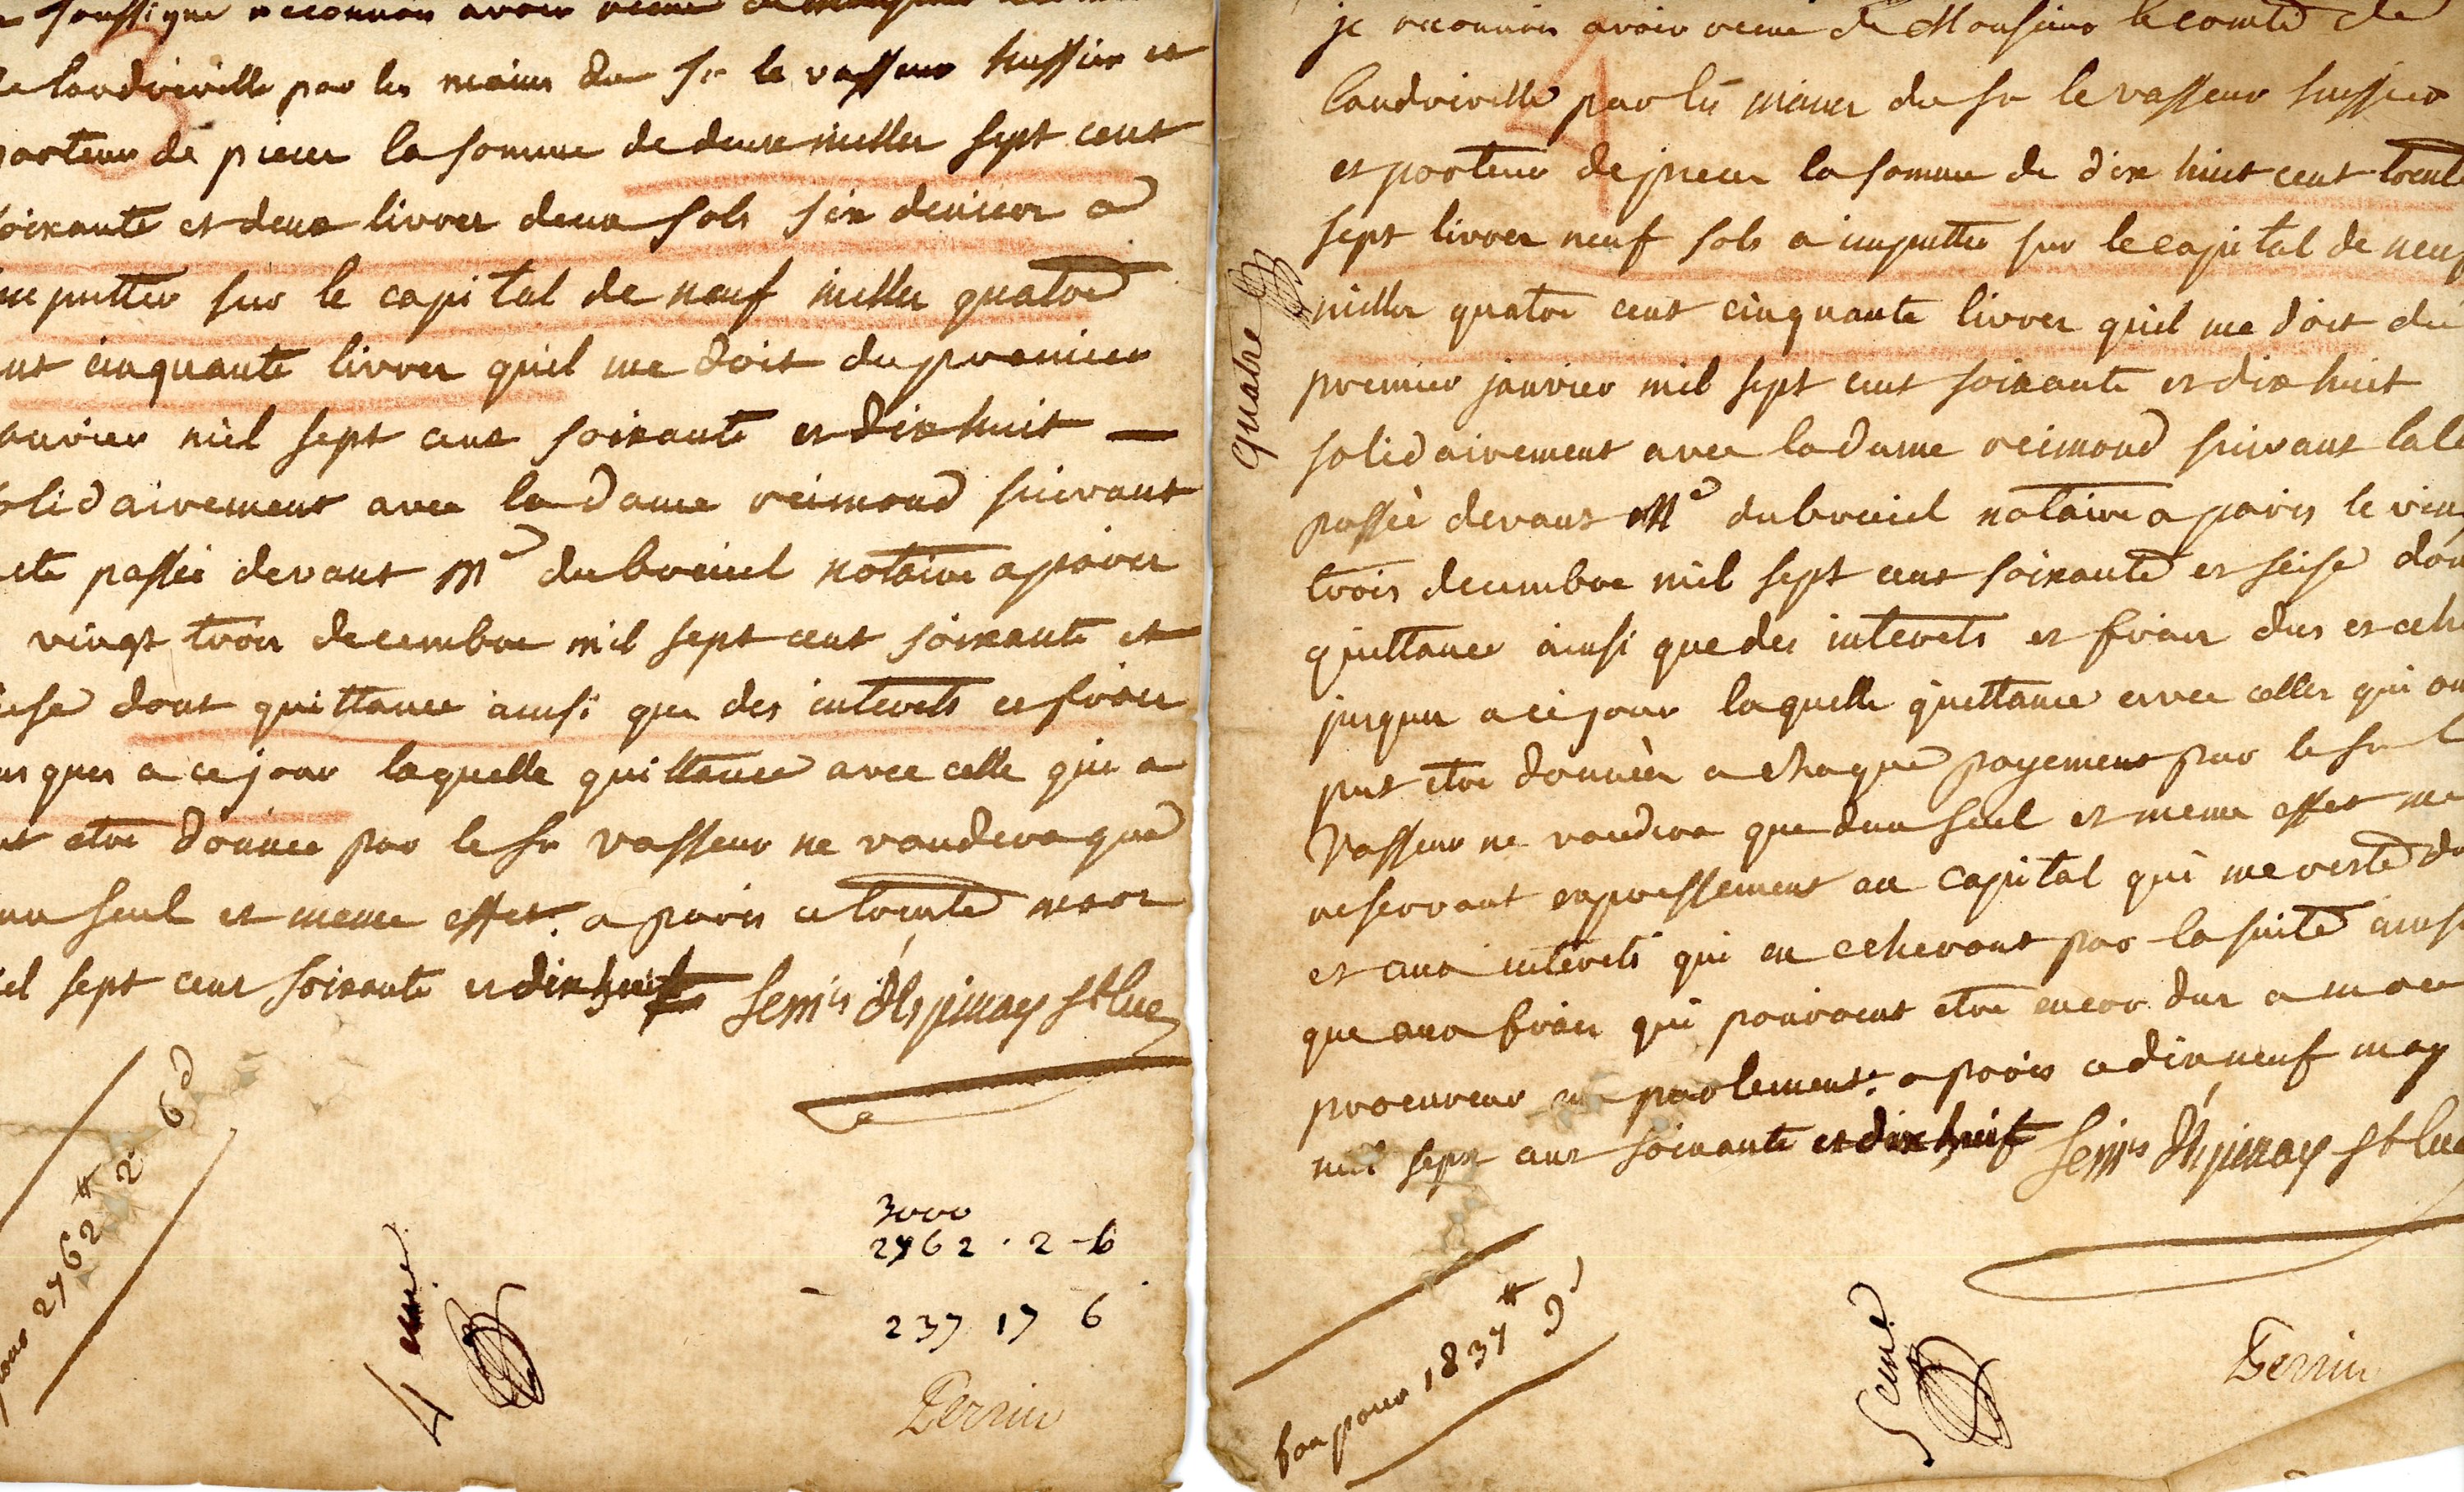 soussigné reconnois avoir recue de
landreville par les mains du Sr le vasseur huissier et
porteur de piecer la somme de deux miller sept cent
soixante et deux livrer deux sols six denier a
imputter sur le capital de neuf miller quatre
ent cinquante livrer quil me doit du premier
anvier mil sept cent soixante et dix huit
olidairement avec la dame reimond suivant
cte passée devant Me dubreuil notaire a pariz
vingt trois decembre mil sept cent soixante et
eise dont quittance ainsi que des interets et frais
usques a ce jour laquelle quittance avec celle qui a
ut etre donnee par le Sr vasseur ne vaudera que
un seul et meme effet. a paris ce trente mars
il sept cent soixante et dix huit Semis d'Espinay St Luc
pour 2762 ₶ 2 6 d
4 eme
3000
2762 . 2 - 6
237 17 6
Perrin
je reconnois avoir recue de Monsieur le comte de
landreville par les mains du Sr le vasseur huissier
et porteur de piecer la somme de dix huit cent trente
sept livrer neuf sols a imputter sur le capital de neuf
miller quatre cent cinquante livrer quil me doit du
premier janvier mil sept cent soixante et dix huit
solidairement avec la dame reimond suivant lacte
passée devant Me dubreuil notaire a paris le vin
trois decembre mil sept cent soixante et seise don
quittance ainsi que des interets et frais dus et eche
jusquer a ce jour laquelle quittance avec celler qui on
put etre donnéer a chaque payement par le Sr l
Vasseur ne vaudera que dun seul et meme effet me
reservant expressement au capital qui me reste du
et aux interets qui en echeront par la suite ainsi
que aux frais qui pouront etre encor dus a mon
procureur au parlement. a paris ce dix neuf may
mil sept cent soixante et dix huit Semis d'Espinay St Luc
quatre
bon pour 1837 ₶ 9 s
5 eme
Perrin